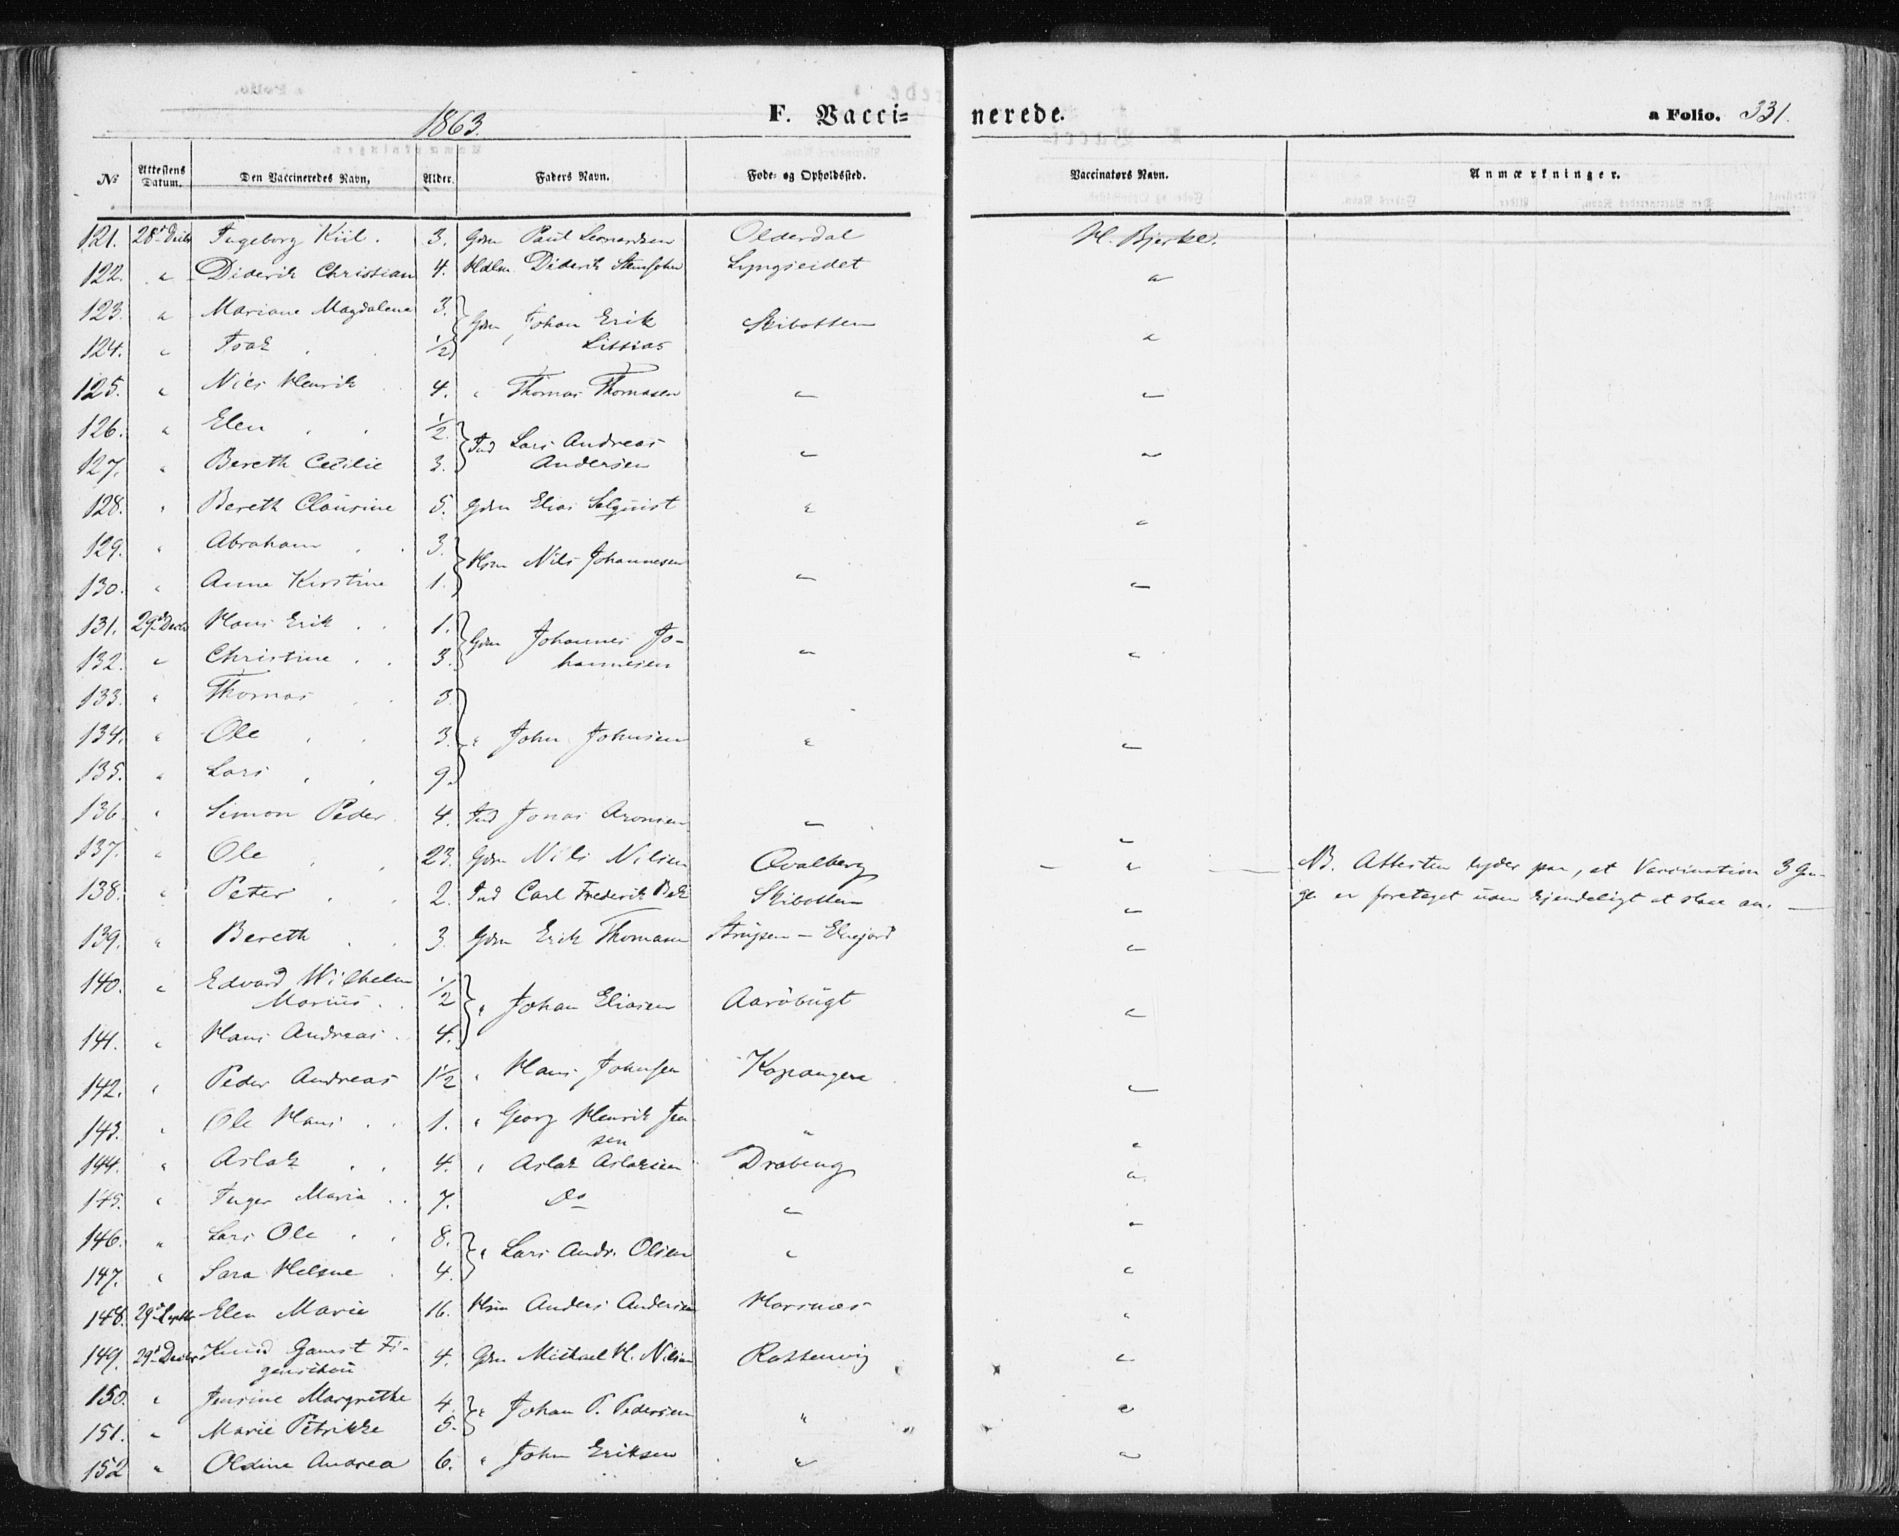 1863. F. Vacci= nerede. a Folio. 331.
No Attestens Datum. Den Vaccineredes Navn, Alder. Faders Navn. Føde- og Opholdssted. Vaccinators Navn. Anmærkninger.
121. 28d Decbr Ingeborg Kiil. 3. Gdm Paul Leonardsen Olderdal H. Bjerke.
122. " Diderik Christian 4. Diderik Lyngseidet "
123. " Mariane Magdalena 3. Gdm Johan Erik Skibotten "
124. " Isak 1/2 Lissias
125. " Nils Henrik 4. " Thomas Thomasen " "
126. " Elen 1/2 Ind Lars Andreas
127. " Bereth Cecilie 3. Andersen " "
128. " Bereth Clausine 5. Gdm Elias Salquist " "
129. " Abraham 3. Hsm Nils Johannesen
130. " Anne Kirstine 1. " "
131. 29d Decbr Hans Erik 1. Gdm Johannes Jo-
132. " Christine 3. hannesen " "
133. " Thomas 3.
134. " Ole 3. " John Johnsen " "
135. " Lars 9.
136. " Simon Peder 4. Ind Jonas Aronsen " "
137. " Ole 23. Gdm Nils Nilsen Qvalberg " NB. Attesten lyder paa, at Vaccination 3 Gan-
138. " Peter 2. Ind Carl Frederik Beck Skibotten " ge er foretaget uden kjendeligt at slaae an. —
139. " Bereth 3. Gdm Erik Thomasen Strupen — Elvejord "
140. " Edvard Wilhelm
Marius 1/2 " Johan Eliasen Aarøbugt "
141. " Hans Andreas 4.
142. " Peder Andreas 1 1/2 " Hans Johnsen Kopangen "
143. " Ole Hans 1. " Georg Henrik Jen-
sen " "
144. " Aslak 4. " Aslak Aslaksen Drabeng "
145. " Inger Maria 7. Do " "
146. " Lars Ole 8. " Lars Andr. Olsen " "
147. " Sara Helene 4. "
148. 29d Septbr Elen Marie 16. Hsm Anders Andersen Horsnes "
149. 29d Decbr Knud Gamst Fi-
genschou 4. Gdm Michael H. Nilsen Rottenvig "
150. " Jensine Margrethe 4. " Johan P. Pedersen " "
151. " Marie Petrikke 5.
152 " Oldine Andrea 6. " John Eriksen " "